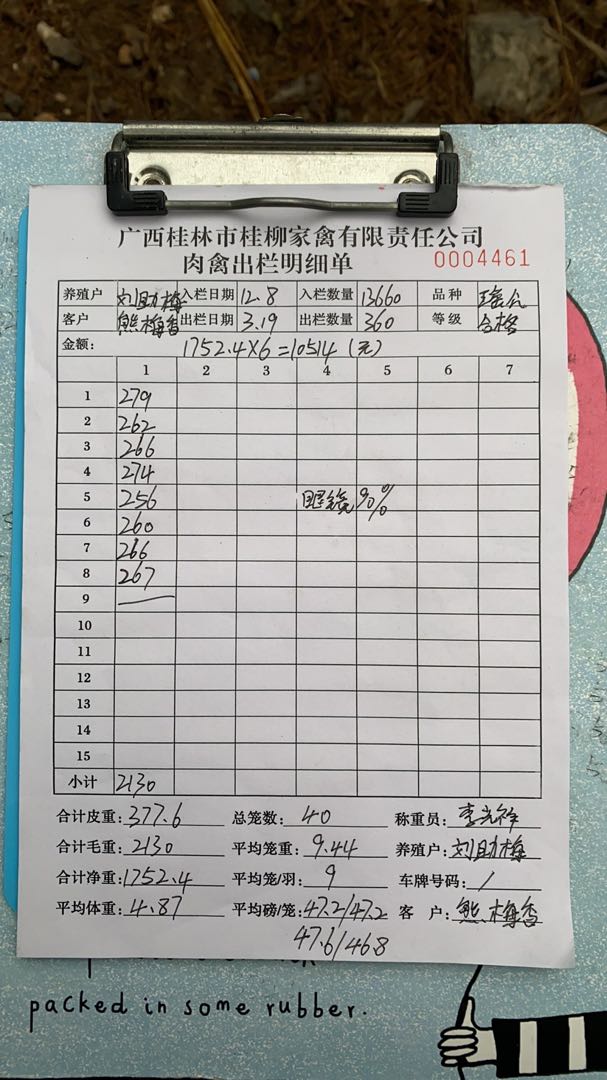 广西桂林市桂柳家禽有限责任公司
肉禽出栏明细单 0004461
养殖户 刘助梅 入栏日期 12.8 入栏数量 13660 品种
客户 熊梅香 出栏日期 3.19 出栏数量 360 等级 合格
金额: 1752.4×6=10514 (元)
1 2 3 4 5 6 7
1 279
2 262
3 266
4 274
5 256 90%
6 260
7 266
8 267
9
10
11
12
13
14
15
小计 2130
合计皮重: 377.6 总笼数: 40 称重员: 李光祥
合计毛重: 2130 平均笼重: 9.44 养殖户: 刘助梅
合计净重: 1752.4 平均笼/羽: 9 车牌号码: /
平均体重: 4.87 平均磅/笼: 47.2/47.2 客户: 熊梅香
47.6/46.8
packed in some rubber.